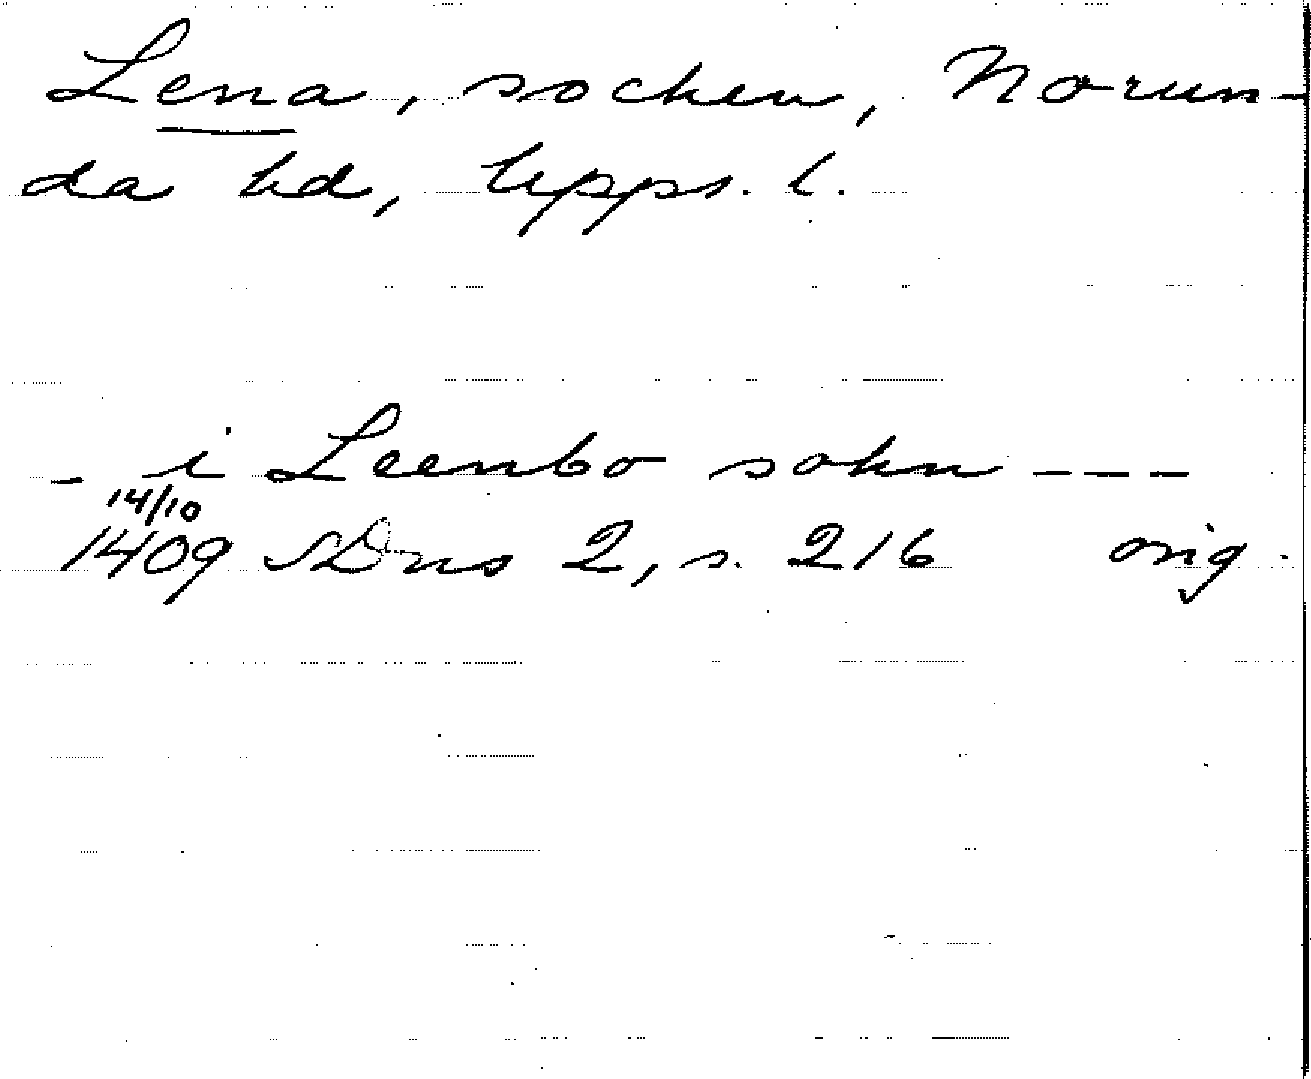 Lena, socken, Norun-
da hd, Upps. l.
- i Leenbo sokn ---
14/10
1409 SDns 2, s. 216 orig.